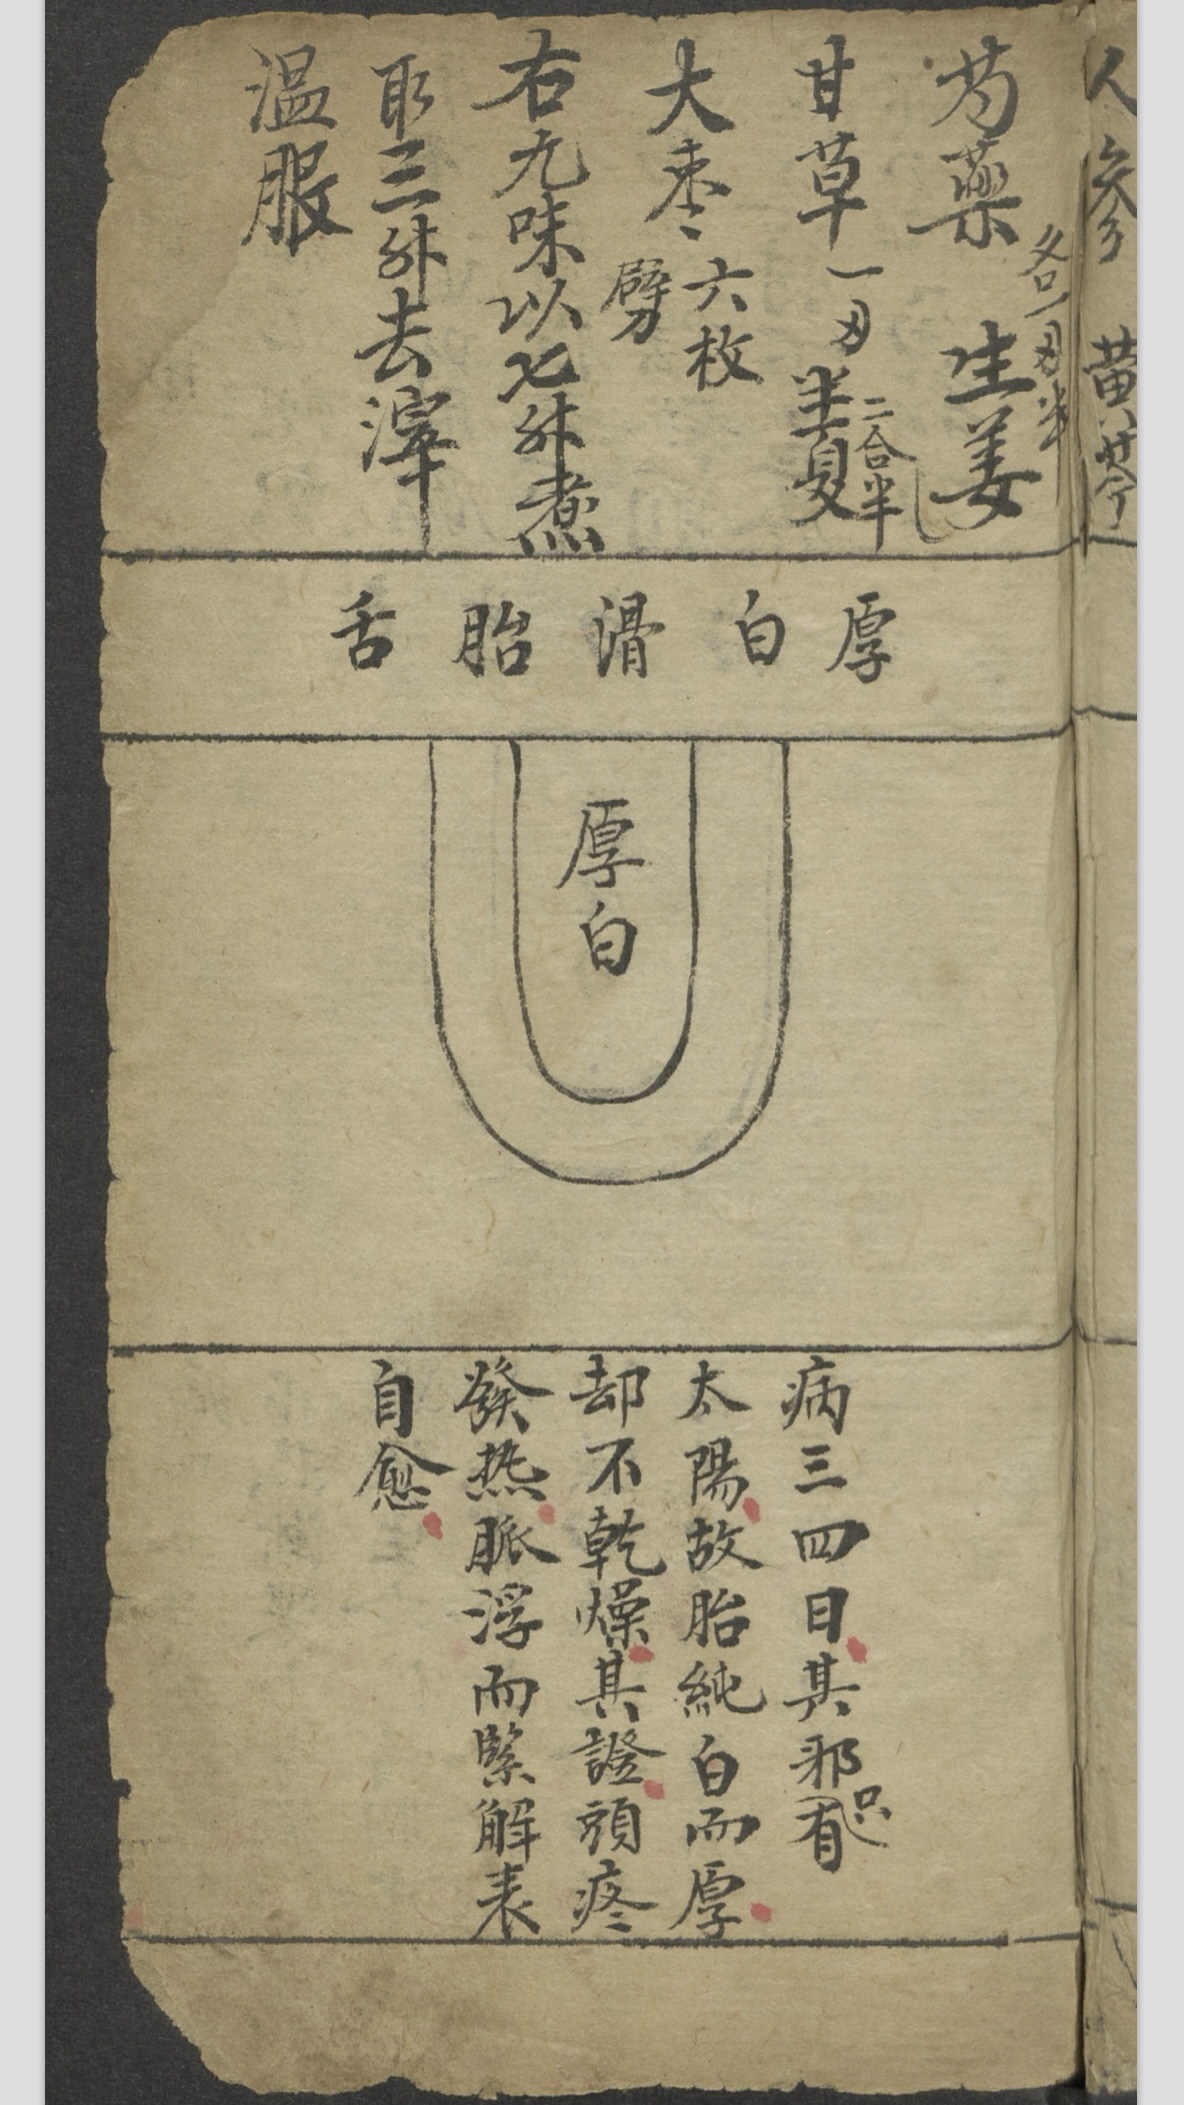 人參 黄芩
各一刄半
芍藥 生姜
甘草一刄 半夏二合半
大枣六枚劈
右九味以七升煮
取三升去滓
温服
厚白滑胎舌
厚白
病三四日其邪只有
太陽故胎純白而厚
却不乾燥其證頭疼
發热脈浮而緊解表
自愈